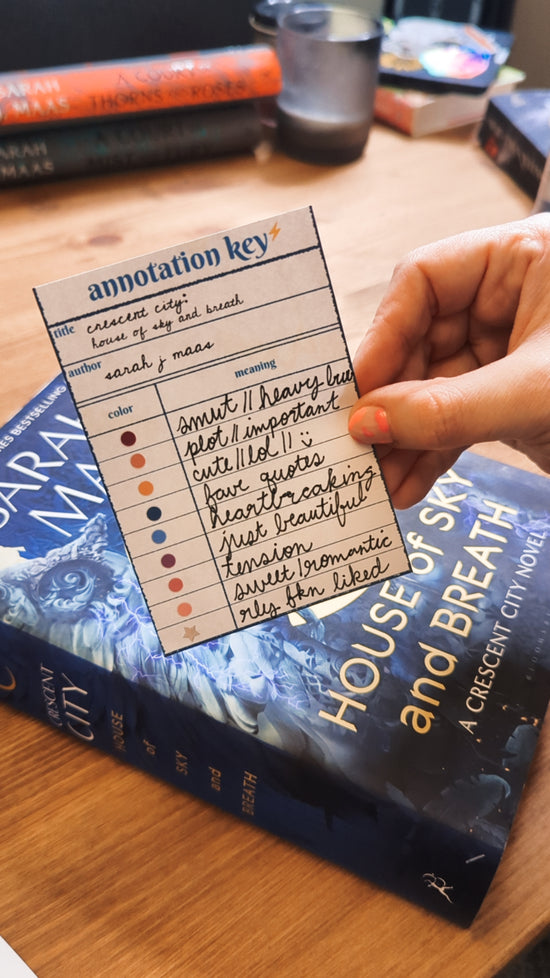 SARAH
J MAAS
A COURT OF
THORNS AND ROSES
SARAH
MAAS
A COURT OF
annotation key
title crescent city:
house of sky and breath
author sarah j maas
color meaning
smut || heavy
plot || important
cute || lol || :)
fave quotes
heartbreaking
just beautiful
tension
sweet | romantic
rly fkn liked
BESTSELLING
SARAH
MAAS
HOUSE OF SKY
and BREATH
A CRESCENT CITY NOVEL
CRESCENT
CITY
HOUSE
of
SKY
and
BREATH